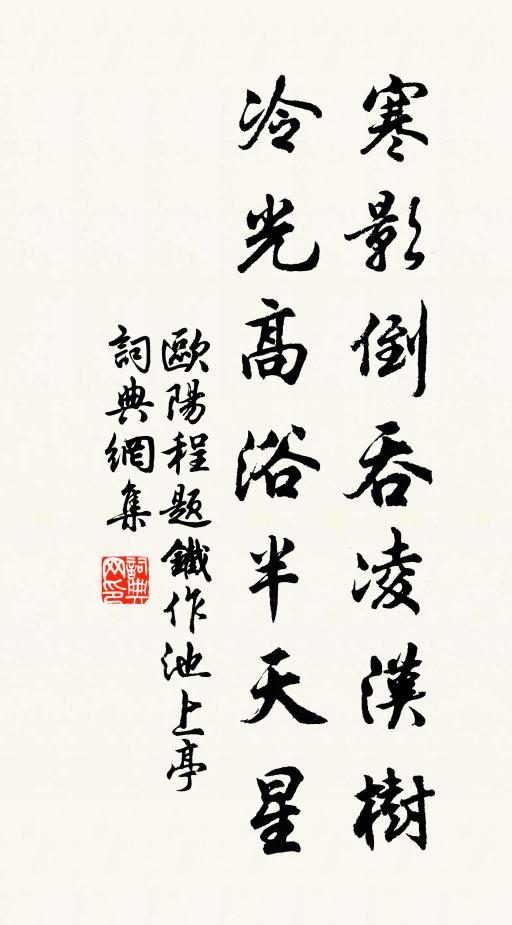 寒影倒吞凌漢樹
冷光高浴半天星
歐陽程題鐵作池上亭
詞典網集
詞典網印